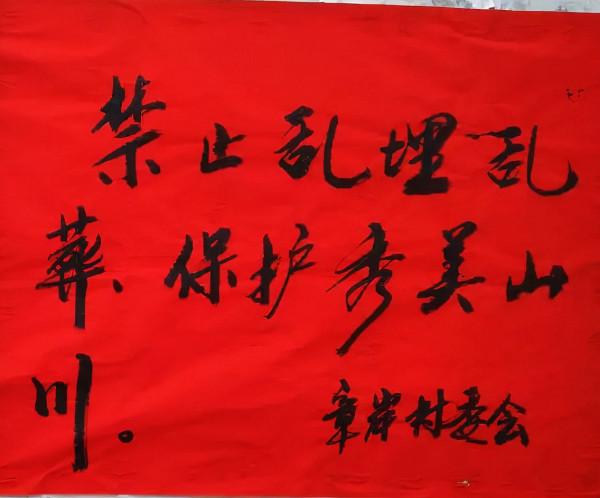 禁止乱埋乱
葬、保护秀美山
川。
章岸村委会